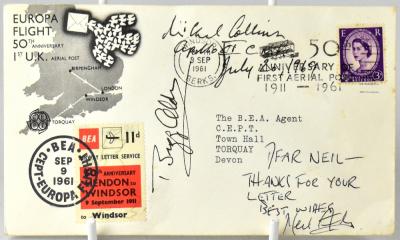 EUROPA
FLIGHT
50TH ANNIVERSARY
1ST U.K. AERIAL POST
BIRMINGHAM
LONDON
WINDSOR
TORQUAY
Michael Collins
Apollo XI C
July 1969
8 SEP
1961
BERKS.
50
ANNIVERSARY
FIRST AERIAL POST
1911 1961
E R
3D
BEA
11d
LETTER SERVICE
ANNIVERSARY
HENDON to
WINDSOR
9 September 1911
to Windsor
BEA
SEP
9
1961
CEPT-EUROPA
Buzz Aldrin
The B.E.A. Agent
C.E.P.T.
Town Hall
TORQUAY
Devon
DEAR NEIL—
THANKS FOR YOUR
LETTER
BEST WISHES
Neil